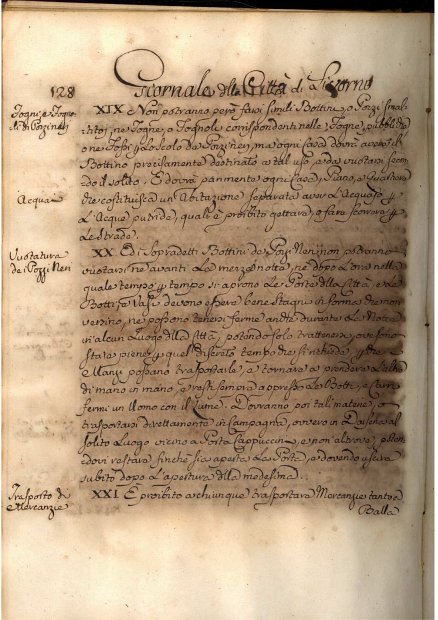 128
Giornale della Città di Livorno
Fogni, e Fogno-
li di Pozzi neri
XIX E Non potranno però farsi simili Bottini, o Pozzi smal-
titoj, ne Fogne, o Fognoli corrispondenti nelle Fogne, pubbliche
o ne Fossi p lo scolo de Pozzi neri, ma ogni Casa dovrà avere il
Bottino precisamente destinato a tal uso, e da vuotarsi secon-
do il solito. E dovrà parimente ogni Casa, Piano, o Quartiere
che costituisca un Abitazione separata aver l'Acquajo p
Acque
L'Acque putride, quali è proibito gettare, o fare scorrere p
Le strade.
Vuotatura
dei Pozzi Neri
XX E di Sopradetti Bottini de Pozzi Neri non potranno
vuotarsi ne avanti La mezza notte, ne dopo L'ora nella
quale tempo p tempo si aprono Le Porte della Città, e Le
Botti, e Vasi devono essere bene stagni in forma che non
versino, ne possono tenersi ferme anche durante La Notte
in alcun Luogo della Città, potendo solo trattenersi, ove sono
state piene p quel discreto tempo che s'intenda
possano trasportarle, e tornare a prendere L'altre
di mano in mano, e resti sempre appresso Le Botti, e Carra
fermi un Uomo con il Lume. Dovranno poi tali materie, o
trasportarsi direttamente in Campagna, ovvero in Darsena al
solito Luogo vicino a Porta Cappuccini, e non altrove, poten-
dovi restare finchè sia aperta La Porta, e dovendo uscire
subito dopo L'apertura della medesima.
Trasporto di
Mercanzie
XXI E proibito a chiunque trasportare Mercanzie tanto a
Balla